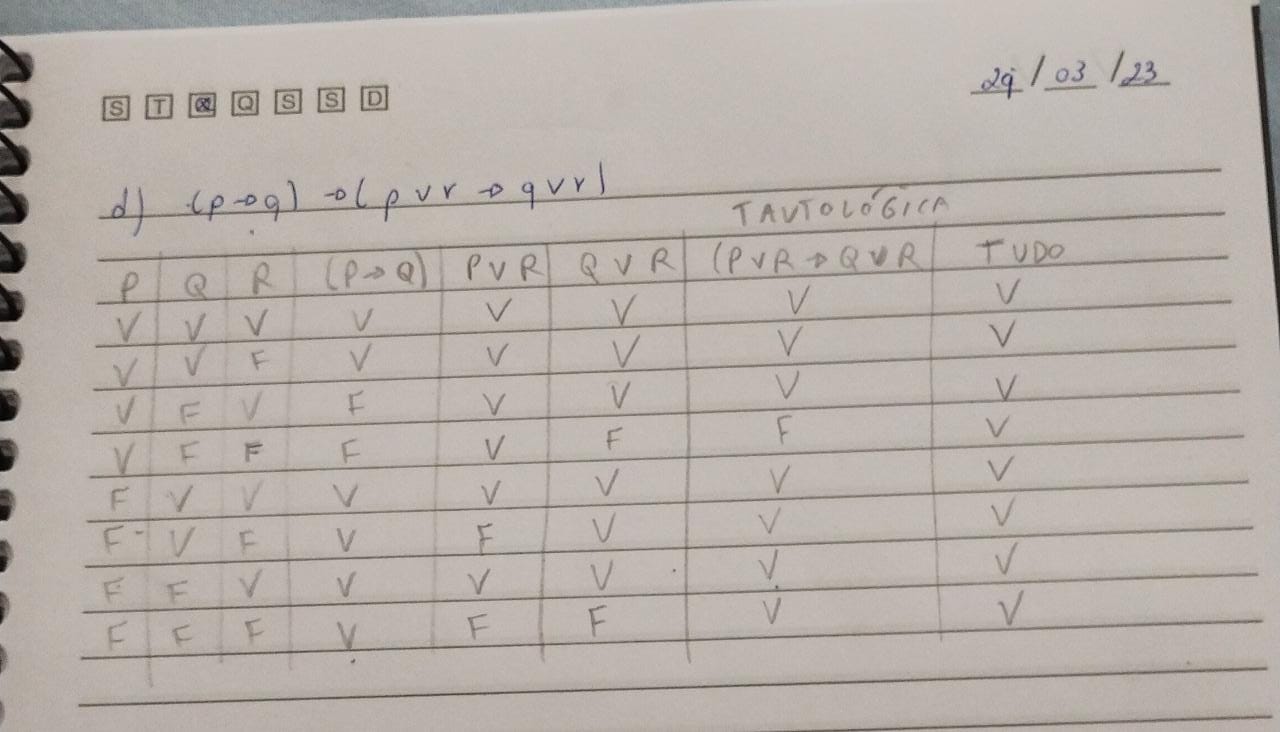 29/03/23
S T Q Q S S D
d) (p→q) →(p v r → q v r)
TAUTOLÓGICA
P Q R (P→Q) P V R Q V R (P V R → Q V R TUDO
V V V V V V V V
V V F V V V V V
V F V F V V V V
V F F F V F F V
F V V V V V V V
F V F V F V V V
F F V V V V V V
F F F V F F V V